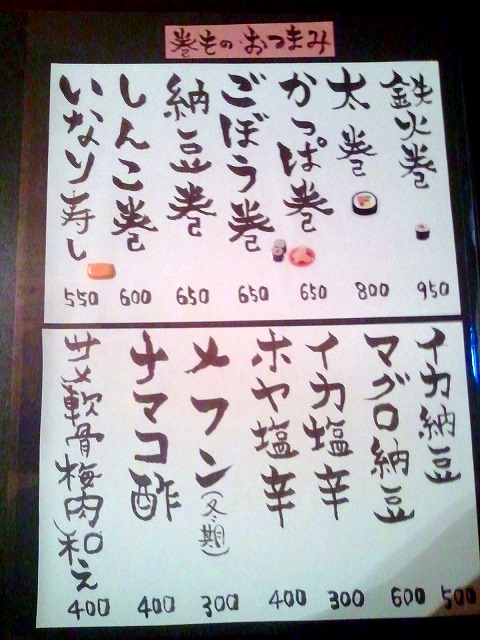 巻もの・おつまみ
鉄火巻 950
太巻 800
かっぱ巻 650
ごぼう巻 650
納豆巻 650
しんこ巻 600
いなり寿し 550
イカ納豆 500
マグロ納豆 600
イカ塩辛 300
ホヤ塩辛 400
メフン(冬期) 300
ナマコ酢 400
サメ軟骨梅肉和え 400